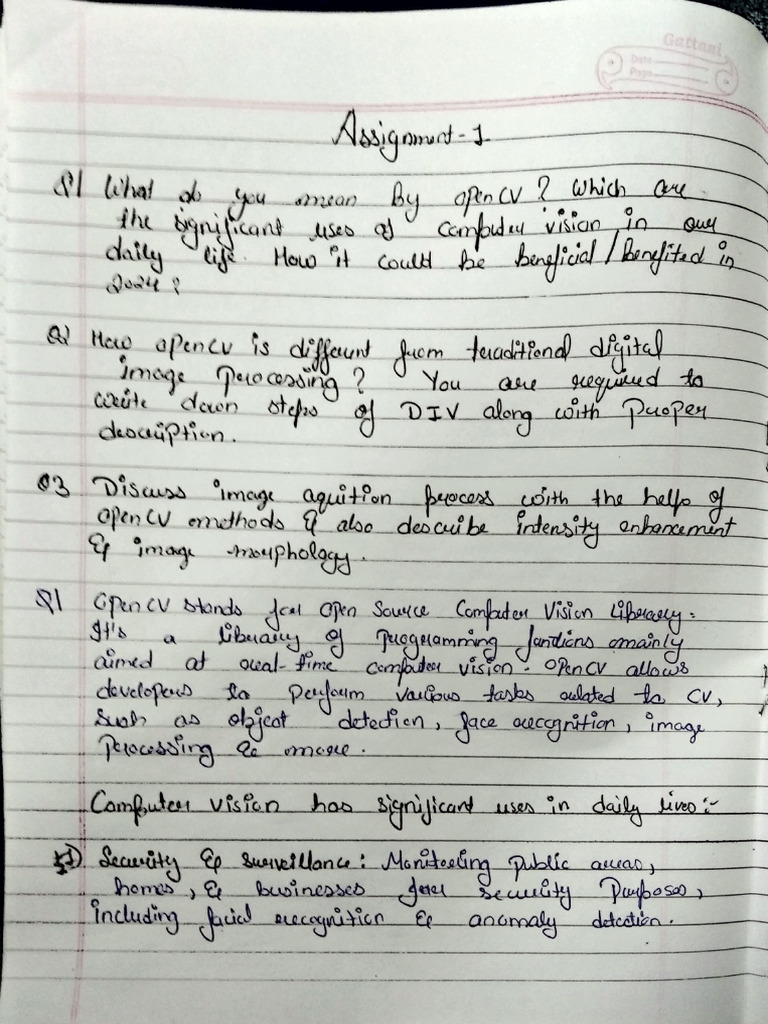 Gattani
Date
Page
Assignment-1
Q1 What do you mean By openCV? Which are
the significant uses of computer vision in our
daily life. How it could be beneficial/Benefited in
2024?
Q2 How opencv is different from traditional digital
image Processing? You are required to
write down steps of DIV along with Proper
description.
Q3 Discuss image aquition process with the help of
openCV methods & also describe intensity enhancement
& image morphology.
Q1 OpenCV stands for Open Source Computer Vision Library.
It's a library of Programming functions mainly
aimed at real-time computer vision. OpenCV allows
developers to Perform various tasks related to CV,
such as object detection, face recognition, image
Processing & more.
Computer vision has significant uses in daily lives:-
1) Security & surveillance: Monitoring Public areas,
homes, & businesses for security Purposes,
including facial recognition & anomaly detection.